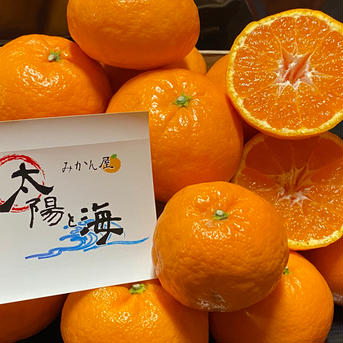 みかん屋
太陽と海